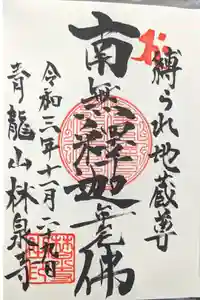 縛られ地蔵尊
南無釋迦牟尼佛
令和三年十一月二十九日
青龍山林泉寺